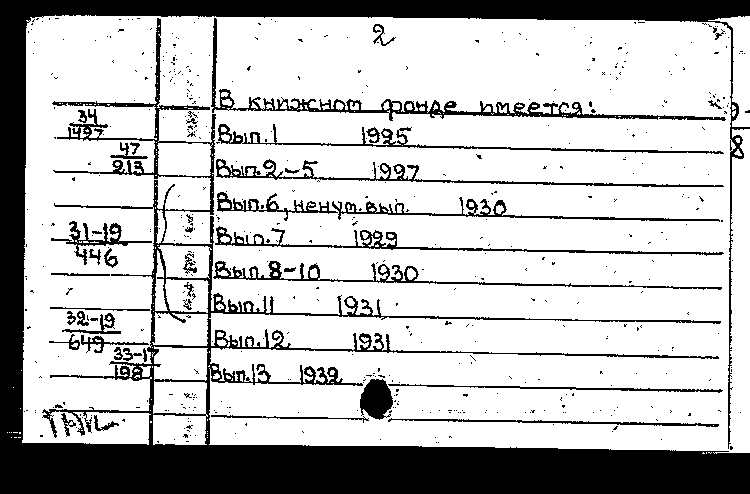 2
В книжном фонде имеется:
34
1497
Вып.1 1925
47
213
Вып.2-5 1927
Вып.6, ненум.вып. 1930
31-19
446
Вып.7 1929
Вып.8-10 1930
Вып.11 1931
32-19
649
Вып.12 1931
33-17
198
Вып.13 1932